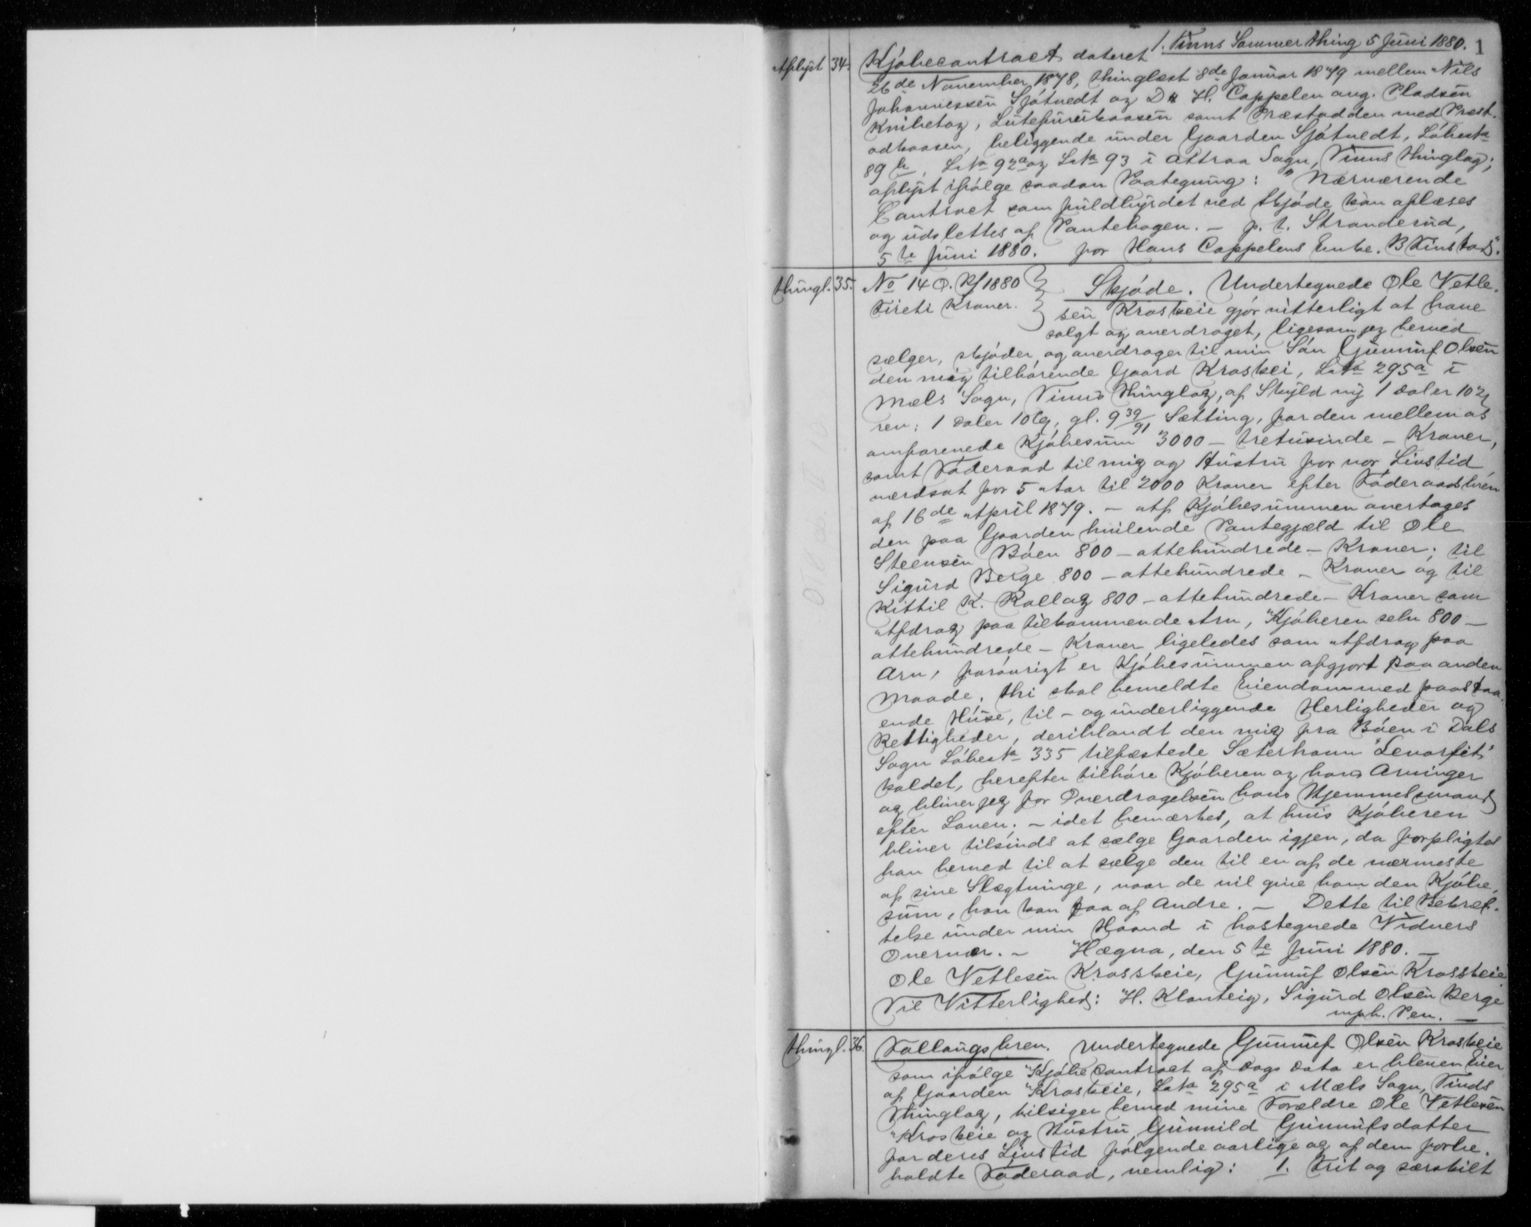 1. Tinns Sommerthing 5 Juni 1880. 1
Aflyst 34. Kjöbecontract dateret
26de November 1878, thinglæst 8de Januar 1879 mellem Nils
Johannessen Sjötvedt og D H. Cappelen ang. Pladsen
samt Præstodden med Præst-
odkaasen, beliggende under Gaarden Sjötvedt, Löbeno
89 b, Lno 92a og Lno 93 i Attraa Sogn, Tinns thinglag;
aflyst ifölge saadan Paategning: "Nærværende
Contract som fuldbyrdet ved Skjöde kan aflæses
og udslettes af Pantebogen. – p. t. Stranderud,
5te Juni 1880. for Hans Cappelens Enke. B Kinstads".
thingl. 35. No 14 O. 1880 Skjöde. Undertegnede Ole Vetle-
Fireti Kroner. sen Kroskeie gjör vitterligt at have
solgt og overdraget, ligesom jeg herved
sælger, skjöder og overdrager til min Sön Gunnuf Olsen
den mig tilhörende Gaard Kroskei, Lno 295a i
Mæls Sogn, Tinns thinglag, af Skyld ny 1 Daler 10
rev: 1 Daler 10, gl. 9 39/91 Sætting, for den mellem os
omforenede Kjöbesum 3000 – tretusinde – Kroner,
samt Föderaad til mig og Hustru for vor Livstid,
værdsat for 5 Aar til 2000 Kroner efter Föderaadsbrev
af 16de April 1879. – Af Kjöbesummen overtages
den paa Gaarden hvilende Pantegjæld til Ole
Steensen Böen 800 – ottehundrede – Kroner; til
Sigurd Berge 800 – ottehundrede – Kroner og til
Kittil K. Rollag 800 – ottehundrede – Kroner som
Afdrag paa tilkommende Arv, Kjöberen selv 800 –
ottehundrede – Kroner ligeledes som Afdrag paa
Arv, forövrigt er Kjöbesummen afgjort paa anden
Maade. Thi skal bemeldte Eiendom med paastaa-
ende Huse, til – og underliggende Herligheder og
Rettigheder, deriblandt den mig fra Böen i Dals
Sogn Löbeno 335 tilfæstede Sæterhavn "Levorfit"
kaldet, herefter tilhöre Kjöberen og hans Arvinger
og bliver jeg for Overdragelsen hans Hjemmelsmand
efter Loven. – idet bemærkes, at hvis Kjöberen
bliver tilsinds at sælge Gaarden igjen, da forpligtes
han herved til at sælge den til en af de nærmeste
af sine Slægtninge, naar de vil give ham den Kjöbe-
sum, han kan faa af Andre. – Dette til Bekræf-
telse under min Haand i hostegnede Vidners
Overvær. – Hægna, den 5te Juni 1880. –
Ole Vetlesen Krosskeie, Gunnuf Olsen Krosskeie
Til Vitterlighed: H. Klonteig, Sigurd Olsen Berge
mph. Pen. –
thingl. 36. Follaugsbrev. Undertegnede Gunnuf Olsen Kroskeie
som ifölge Kjöbecontract af Dags Dato er bleven Eier
af Gaarden Kroskeie, Lno 295a i Mæls Sogn, Tinds
Thinglag, tilsiger herved mine Forældre Ole Vetlesen
Kroskeie og Hustru Gunnild Gunnulsdatter
for deres Livstid fölgende aarlige og af dem forbe-
holdte Föderaad, nemlig: 1. Frit og særskilt